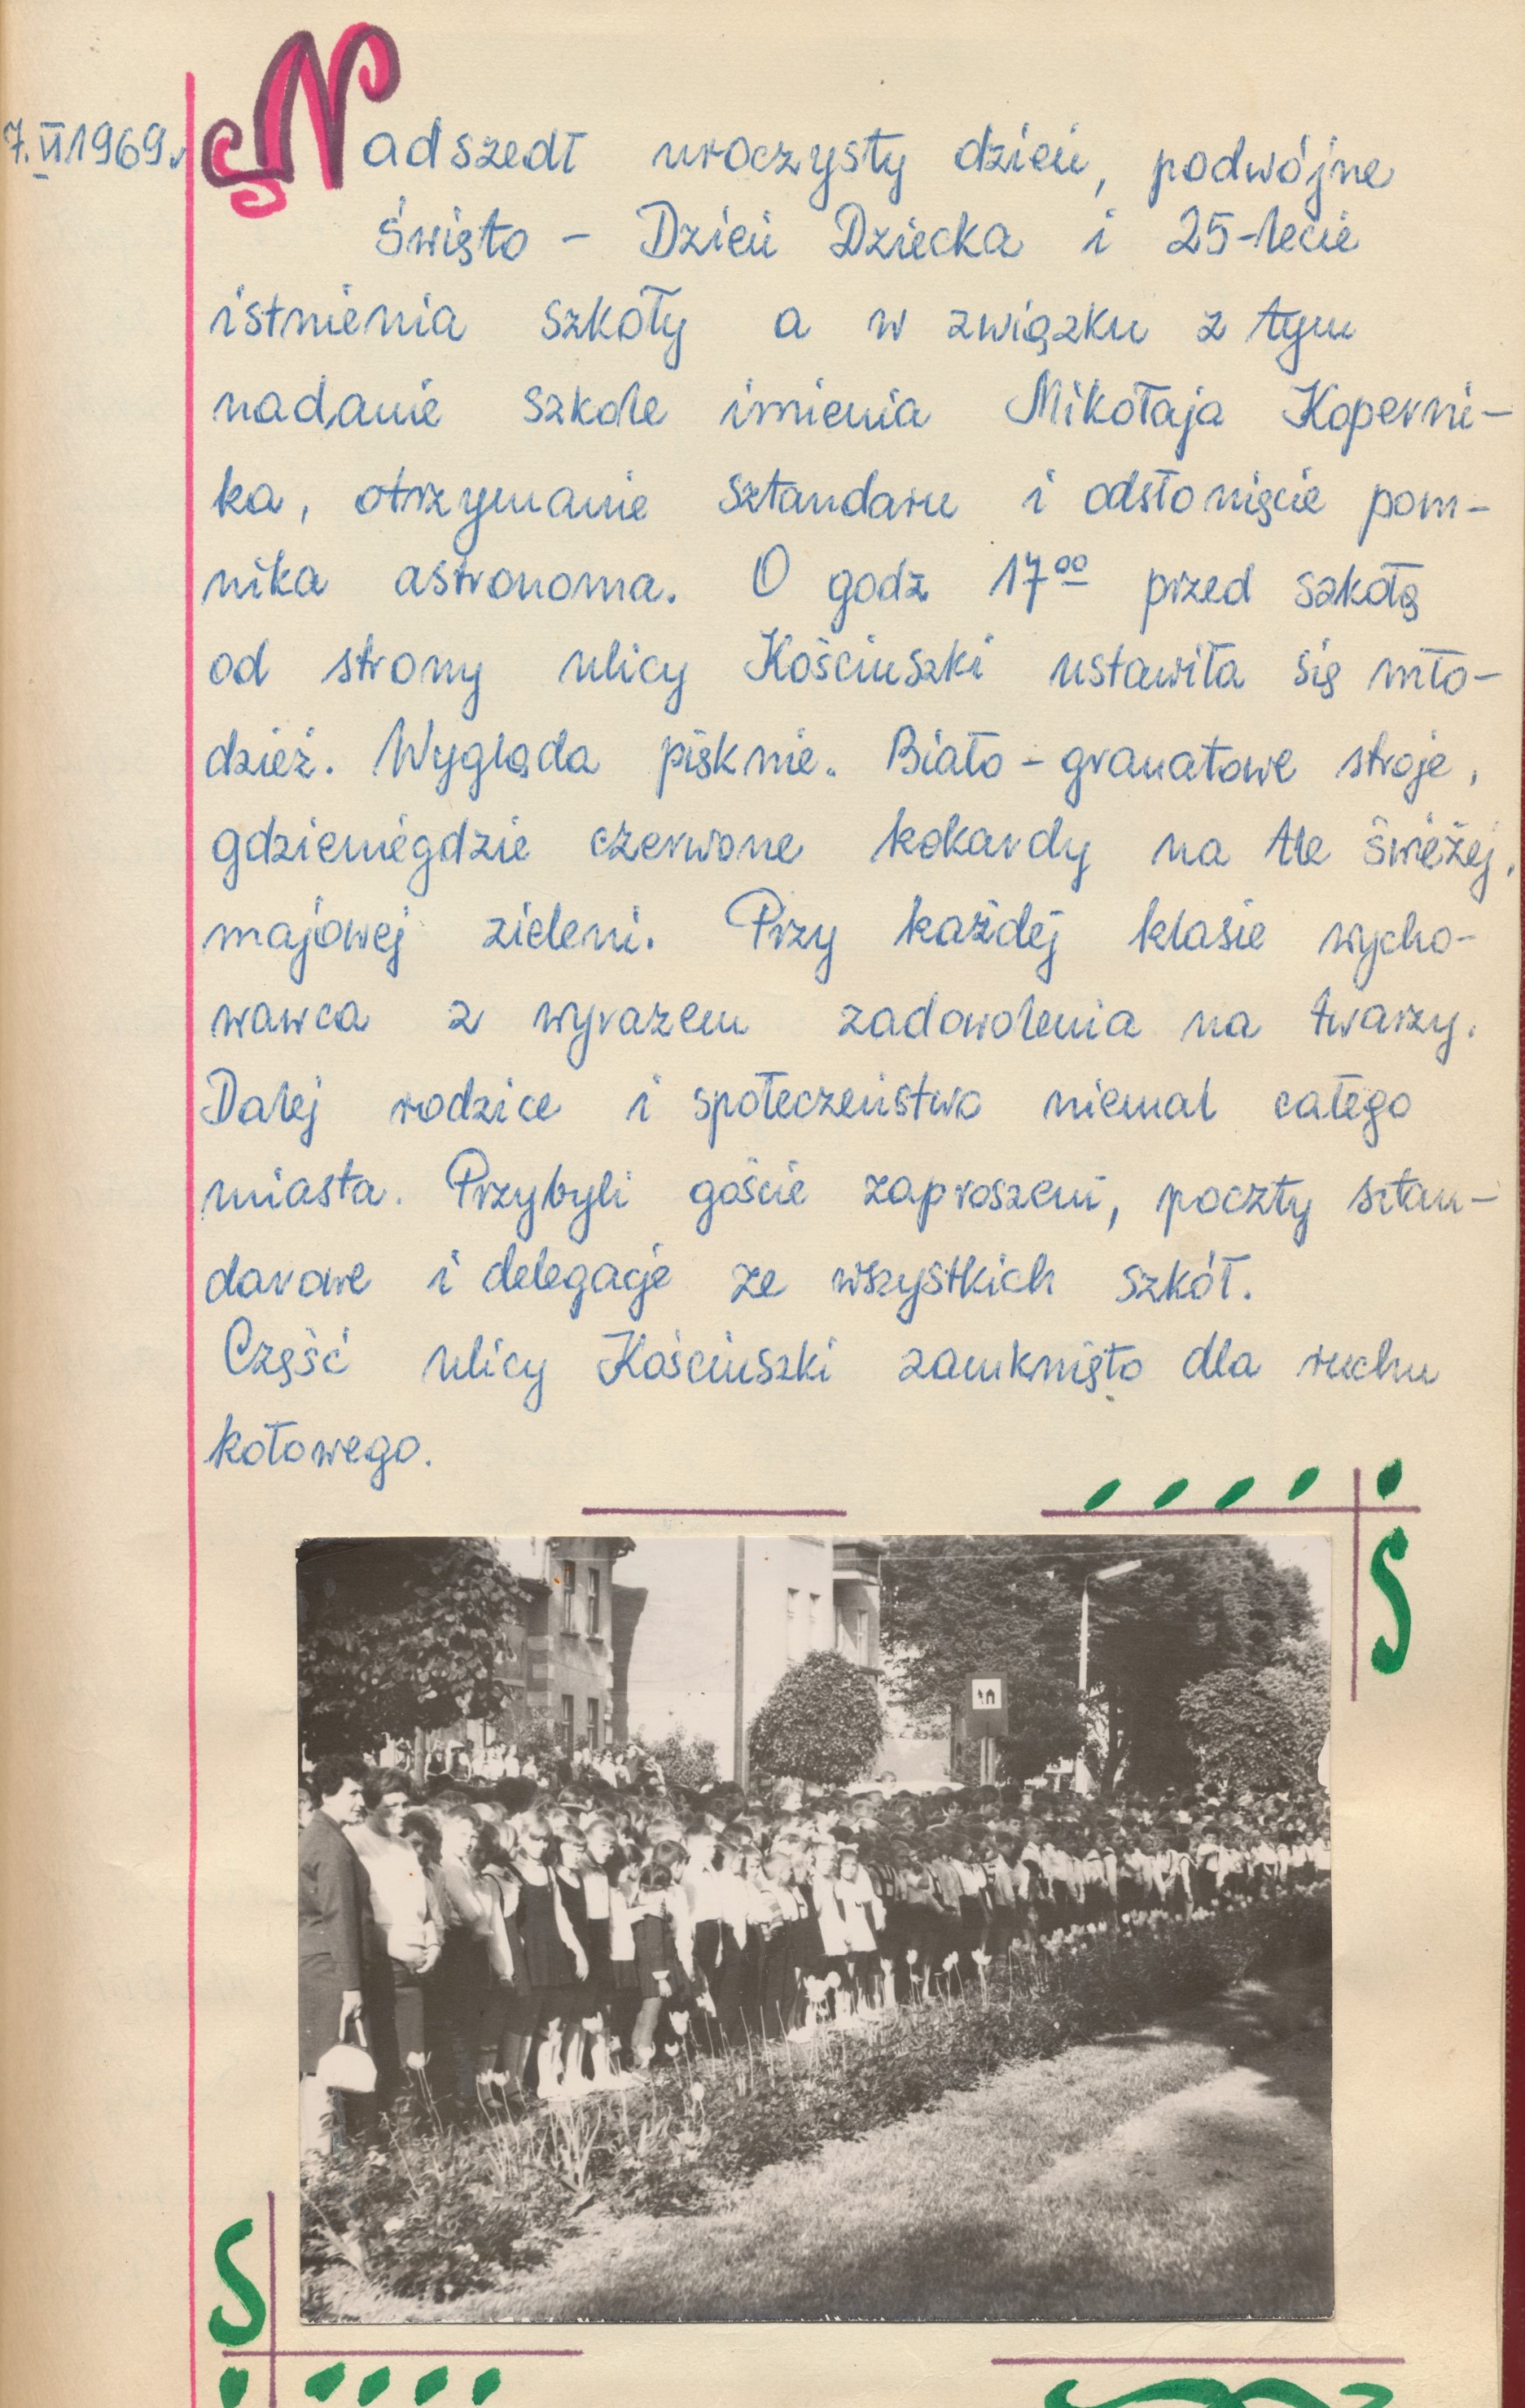 7.VI 1969r. Nadszedł uroczysty dzień, podwójne
święto – Dzień Dziecka i 25-lecie
istnienia szkoły a w związku z tym
nadanie szkole imienia Mikołaja Koperni-
ka, otrzymanie sztandaru i odsłonięcie pom-
nika astronoma. O godz 17⁰⁰ przed szkołą
od strony ulicy Kościuszki ustawiła się mło-
dzież. Wygląda pięknie. Biało-granatowe stroje,
gdzieniegdzie czerwone kokardy na tle świeżej,
majowej zieleni. Przy każdej klasie wycho-
wawca z wyrazem zadowolenia na twarzy.
Dalej rodzice i społeczeństwo niemal całego
miasta. Przybyli goście zaproszeni, poczty sztan-
darowe i delegacje ze wszystkich szkół.
Część ulicy Kościuszki zamknięto dla ruchu
kołowego.